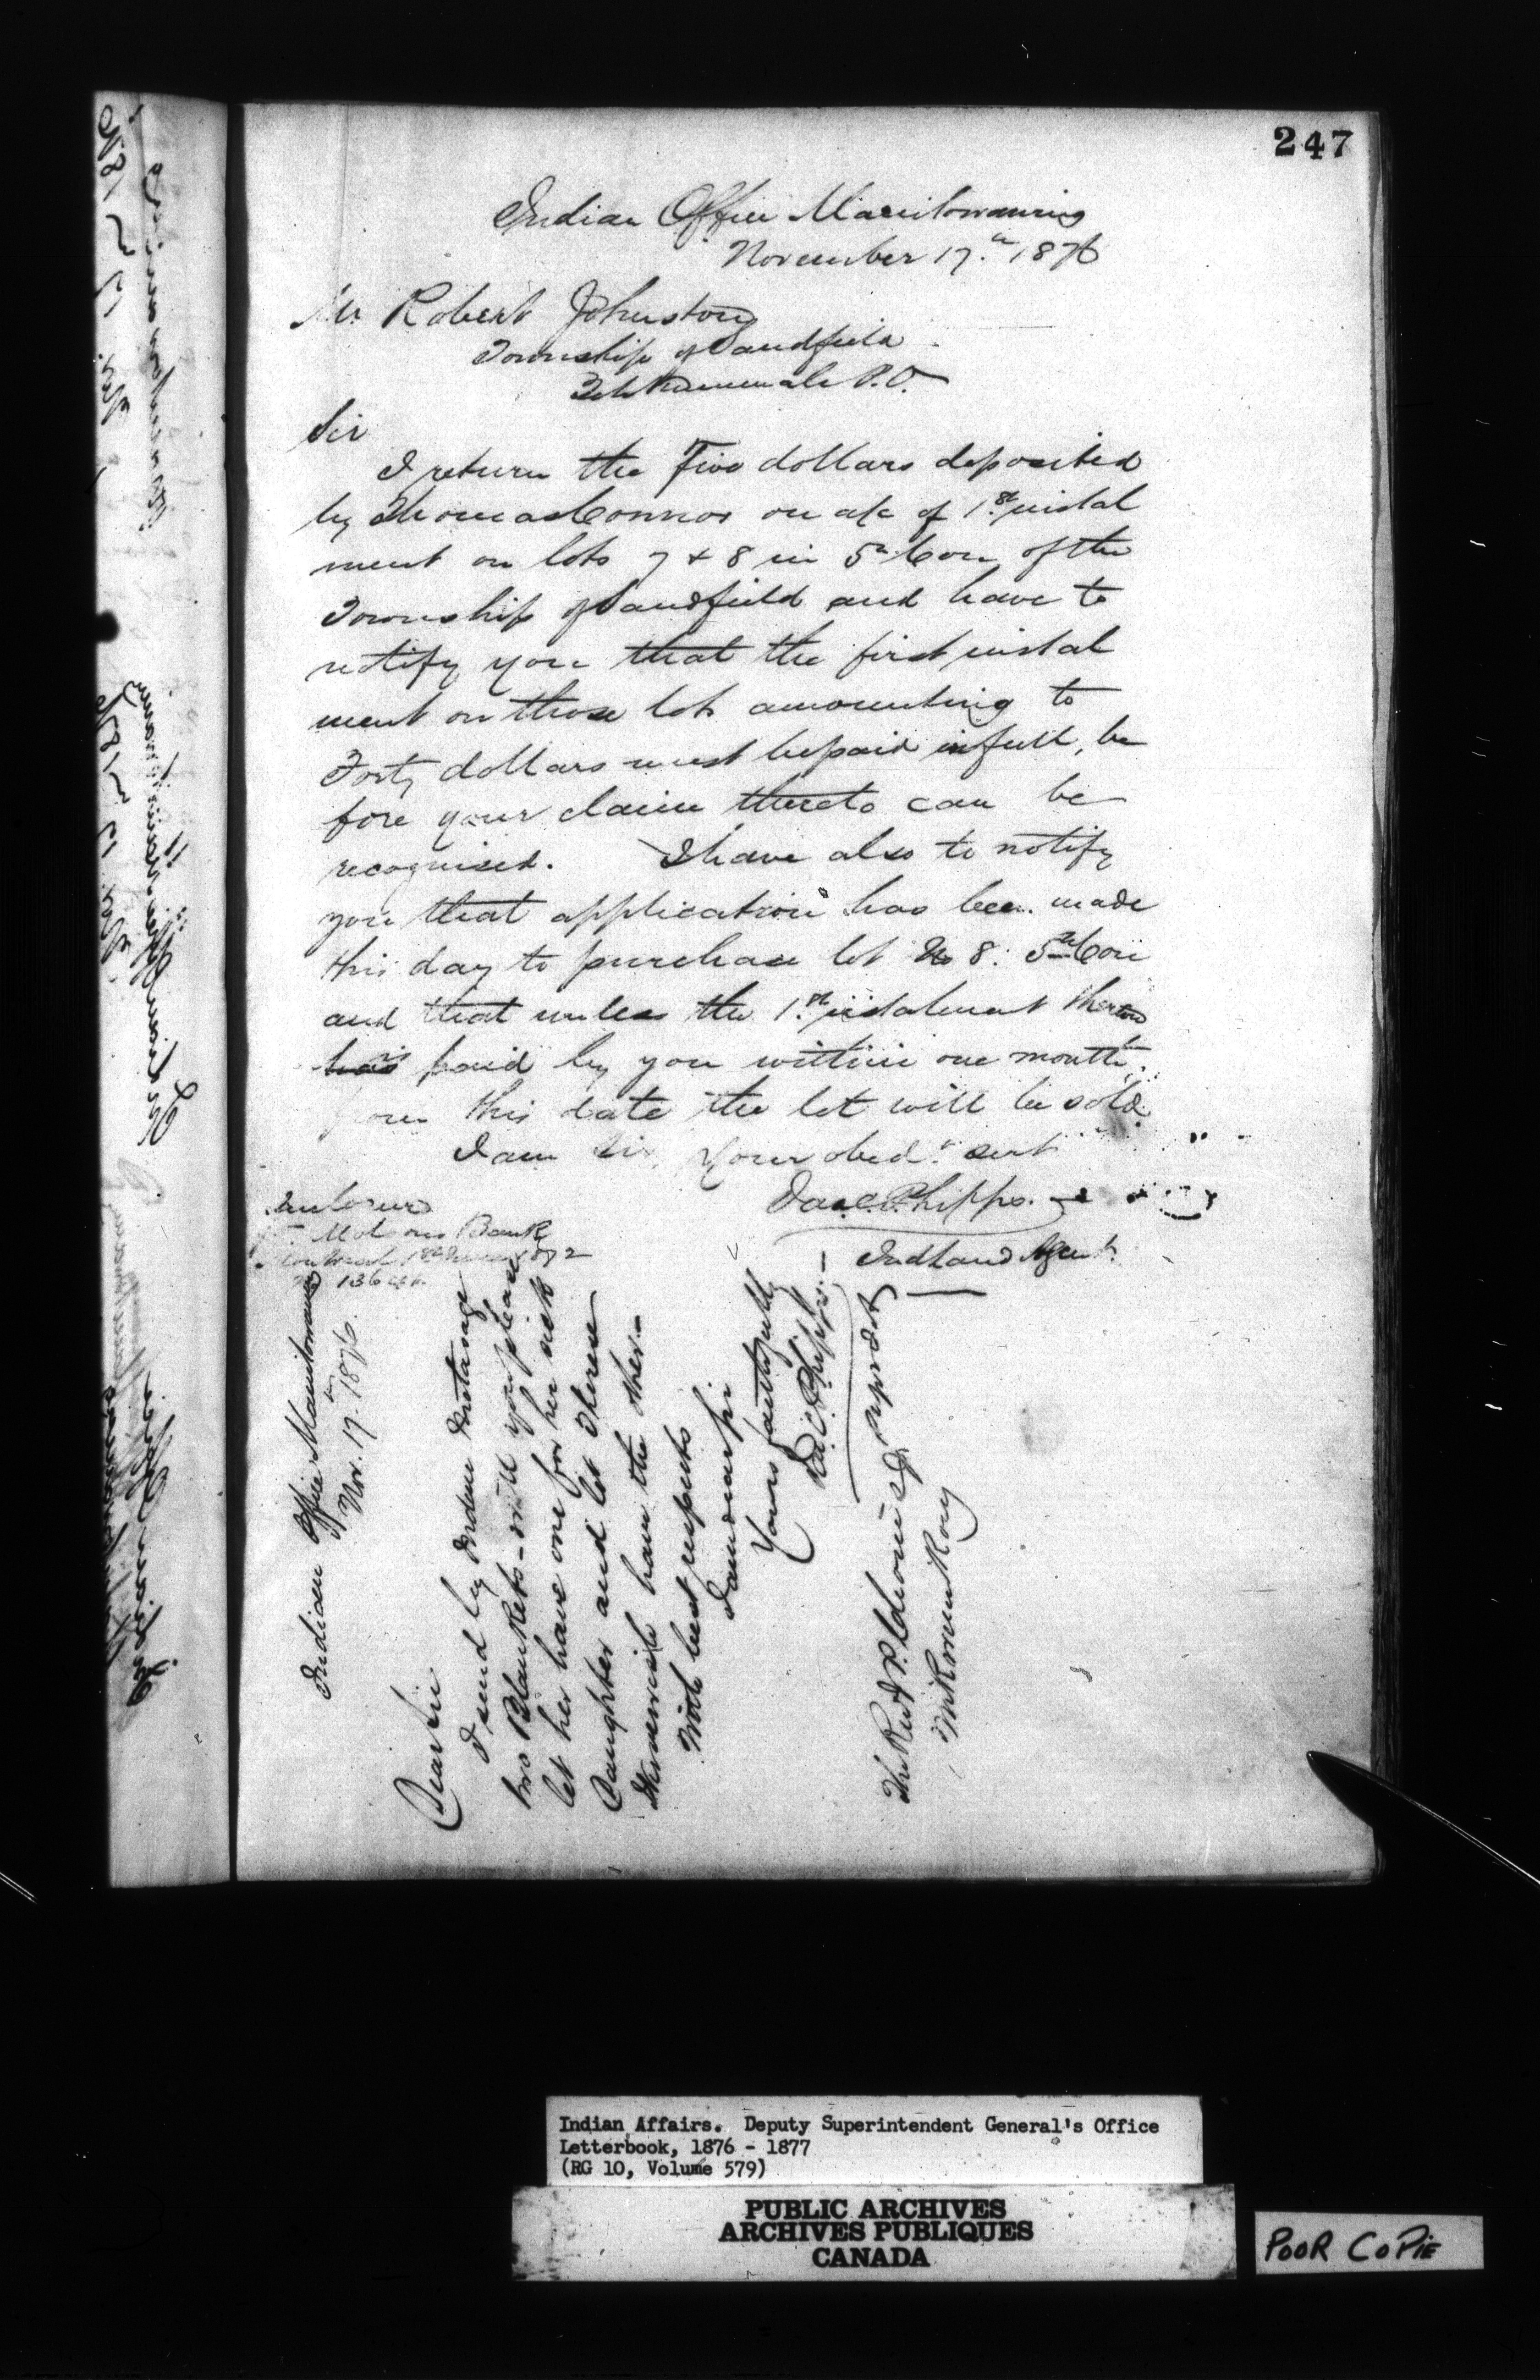 247
Indian Office Manitowaning
November 17.th 1876
Mr. Robert Johnston
Township of Sandfield
Tehkummah P.O.
Sir
I return the Five dollars deposited
by Thomas Connor on a/c of 1.st instal
ment on lots 7 & 8 in 5th Con of the
Township of Sandfield and have to
notify you that the first instal
ment on those lots amounting to
Forty dollars must be paid in full, be
fore your claim thereto can be
recognized. I have also to notify
you that application has been made
this day to purchase lot No 8. 5th Con
and that unless the 1.st instalment thereon
is paid by you within one month
from this date the lot will be sold
I am Sir, Your obed.t servt
Jas. C. Phipps.
Ind Land Agent.
Enclosure
Molsons Bank
Montreal 1872
Indian Office Manitowaning
Nov. 17.th 1876.
Dear Sir
I send by
two Blankets - will you please
let her have one for her sick
Daughter and let Therese
have the other.-
With best respects
I am dear sir
Yours faithfully
Jas. C. Phipps.-
The Revd P.
Wikwemikong
Indian Affairs. Deputy Superintendent General's Office
Letterbook, 1876 - 1877
(RG 10, Volume 579)
PUBLIC ARCHIVES
ARCHIVES PUBLIQUES
CANADA
POOR COPIE